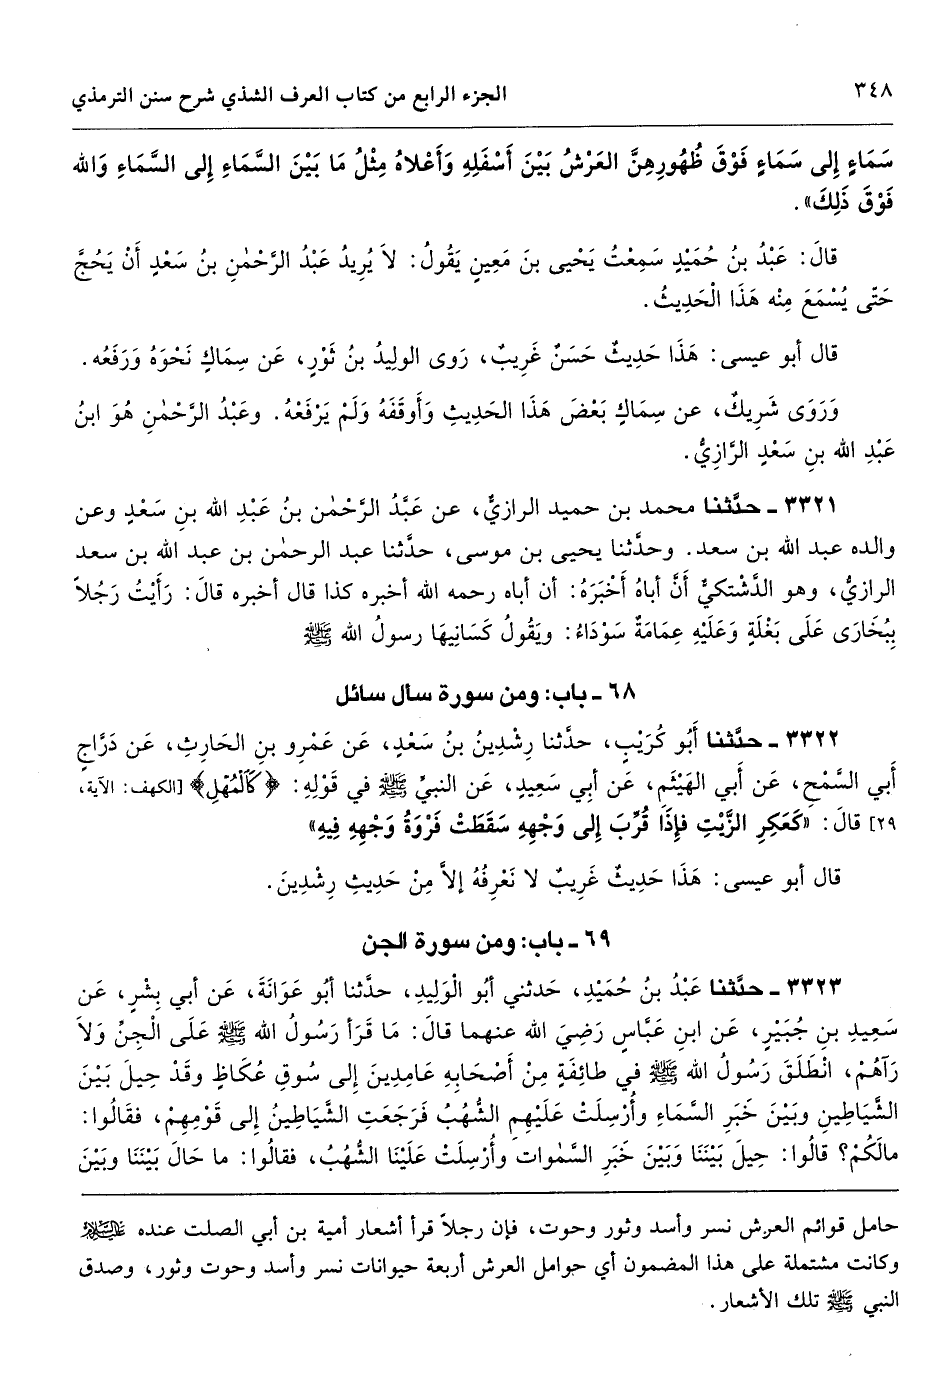 ٣٤٨
الجزء الرابع من كتاب العرف الشذي شرح سنن الترمذي
سَمَاءٍ إلى سَمَاءٍ فَوْقَ ظُهُورِهِنَّ العَرْشُ بَيْنَ أَسْفَلِهِ وَأَعْلاهُ مِثْلُ مَا بَيْنَ السَّمَاءِ إلى السَّمَاءِ وَالله
فَوْقَ ذَلِكَ».
قالَ: عَبْدُ بنُ حُمَيْدٍ سَمِعْتُ يَحْيى بنَ مَعِينٍ يَقُولُ: لاَ يُرِيدُ عَبْدُ الرَّحْمٰنِ بنُ سَعْدٍ أَنْ يَحُجَّ
حَتّى يُسْمَعَ مِنْه هَذَا الْحَدِيثُ.
قال أبو عيسى: هَذَا حَدِيثٌ حَسَنٌ غَرِيبٌ، رَوى الوليدُ بنُ ثَوْرٍ، عَن سِمَاكٍ نَحْوَهُ وَرَفَعُه.
وَرَوَى شَرِيكٌ، عن سِمَاكٍ بَعْضَ هَذَا الحَدِيثِ وَأَوقَفَهُ وَلَمْ يَرْفَعْهُ. وعَبْدُ الرَّحْمٰنِ هُوَ ابنُ
عَبْدِ الله بنِ سَعْدٍ الرَّازِيُّ.
٣٣٢١ ـ حدَّثنا محمد بن حميد الرازيُّ، عن عَبْدُ الرَّحْمٰن بنُ عَبْدِ الله بنِ سَعْدٍ وعن
والده عبد الله بن سعد. وحدَّثنا يحيى بن موسى، حدَّثنا عبد الرحمٰن بن عبد الله بن سعد
الرازيُّ، وهو الدَّشْتكيُّ أَنَّ أباهُ أَخْبَرَهُ: أن أباه رحمه الله أخبره كذا قال أخبره قالَ: رَأَيْتُ رَجُلاً
بِبُخَارَى عَلَى بَغْلَةٍ وَعَلَيْهِ عِمَامَةٌ سَوْدَاءُ: ويَقُولُ كَسَانِيهَا رسولُ الله ﷺ
٦٨ ـ باب: ومن سورة سال سائل
٣٣٢٢ ـ حدَّثنا أَبُو كُرَيْبٍ، حدَّثنا رِشْدِينُ بنُ سَعْدٍ، عَن عَمْرِو بنِ الحَارِثِ، عَن دَرَّاجٍ
أَبي السَّمْحِ، عَن أَبي الهَيْثَمِ، عَن أَبِي سَعِيدٍ، عَن النبيِّ ﷺ في قَوْلِهِ: ﴿كَالْمُهْلِ﴾ [الكهف: الآية،
٢٩] قالَ: «كَعَكِرِ الزَّيْتِ فإِذَا قُرِّبَ إلى وَجْهِهِ سَقَطَتْ فَرْوَةُ وَجْهِهِ فِيهِ»
قال أبو عيسى: هَذَا حَدِيثٌ غَرِيبٌ لا نَعْرِفُهُ إلاَّ مِنْ حَدِيثِ رِشْدِينَ.
٦٩ ـ باب: ومن سورة الجن
٣٣٢٣ ـ حدَّثنا عَبْدُ بنُ حُمَيْدٍ، حَدثني أبُو الْوَلِيدِ، حدَّثنا أبُو عَوَانَةَ، عَن أبي بِشْرٍ، عَن
سَعِيدِ بنِ جُبَيْرٍ، عَن ابنِ عَبَّاسٍ رَضِيَ الله عنهما قالَ: مَا قَرَأ رَسُولُ الله ﷺ عَلَى الْجِنِّ وَلاَ
رَآهُمْ، انْطَلَقَ رَسُولُ الله ﷺ في طائِفَةٍ مِنْ أَصْحَابِهِ عامِدِينَ إلى سُوقِ عُكَاظٍ وقَدْ حِيلَ بَيْنَ
الشَّيَاطِينِ وبَيْنَ خَبَرِ السَّمَاءِ وأُرْسِلَتْ عَلَيْهِم الشُّهُبُ فَرَجَعَتِ الشَّيَاطِينُ إلى قَوْمِهِمْ، فقَالُوا:
مالَكُمْ؟ قالُوا: حِيلَ بَيْنَنَا وَبَيْنَ خَبَرِ السَّمٰوات وأُرْسِلَتْ عَلَيْنَا الشُّهُبُ، فقالُوا: ما حَالَ بَيْنَنَا وبَيْنَ
حامل قوائم العرش نسر وأسد وثور وحوت، فإن رجلاً قرأ أشعار أمية بن أبي الصلت عنده عليه السلام
وكانت مشتملة على هذا المضمون أي حوامل العرش أربعة حيوانات نسر وأسد وحوت وثور، وصدق
النبي ﷺ تلك الأشعار.